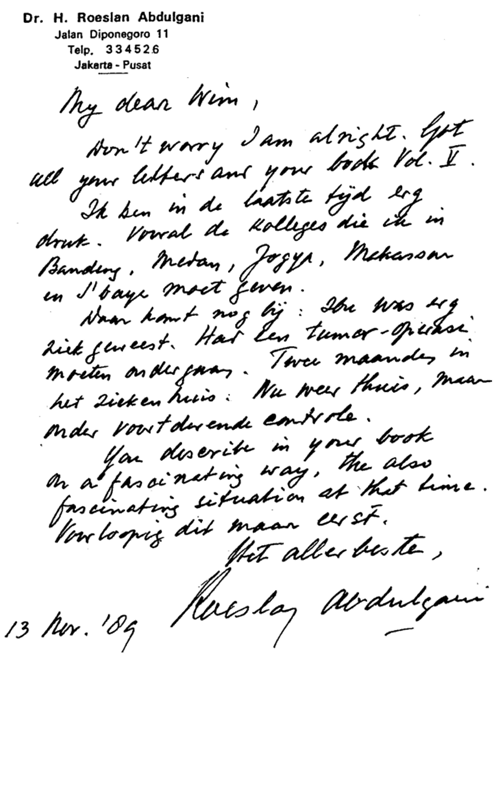 Dr. H. Roeslan Abdulgani
Jalan Diponegoro 11
Telp. 334526
Jakarta - Pusat
My dear Wim,
Don't worry I am alright. Got
all your letters and your book Vol. V.
Ik ben in de laatste tijd erg
druk. Vooral de kolleges die ik in
Bandung, Medan, Jogya, Makassar
en S'baya moet geven.
Daar komt nog bij: Ibu was erg
ziek geweest. Had een tumor-operasi
moeten ondergaan. Twee maanden in
het ziekenhuis. Nu weer thuis, maar
onder voortdurende controle.
You describe in your book
on a fascinating way, the also
fascinating situation at that time.
Voorloopig dit maar eerst.
Het allerbeste,
Roeslan Abdulgani
13 Nov. '89